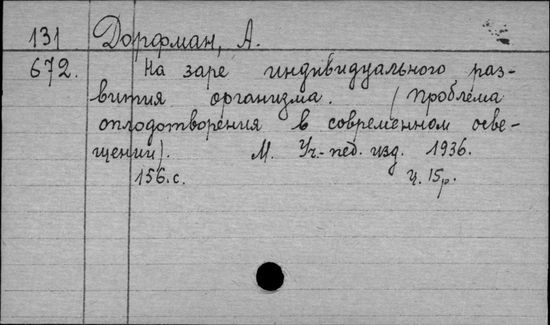 131 Дорфман, А.
672. На заре индивидуального раз-
вития организма. (Проблема
оплодотворения в современном осве-
щении). М. Уч.-пед. изд. 1936.
156 с. ц. 15р.